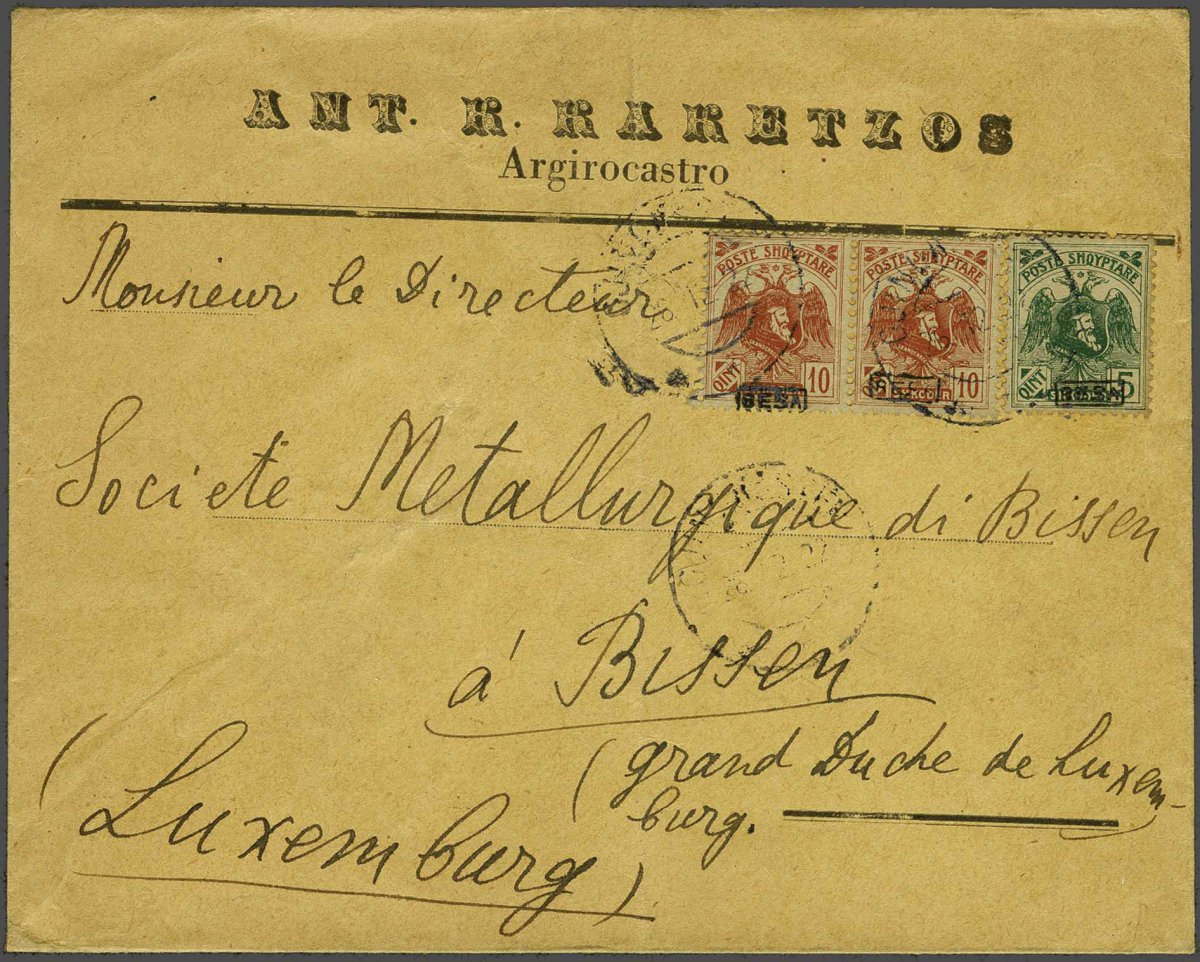 ANT. K. KARETZOS
Argirocastro
Monsieur le Directeur
POSTE SHQYPTARE
POSTE SHQYPTARE
POSTE SHQYPTARE
QINT 10
10
QINT 5
BESA
BESA
BESA
Societe Metallurgique di Bissen
à Bissen
(grand Duche de Luxem-
burg.
(Luxemburg)